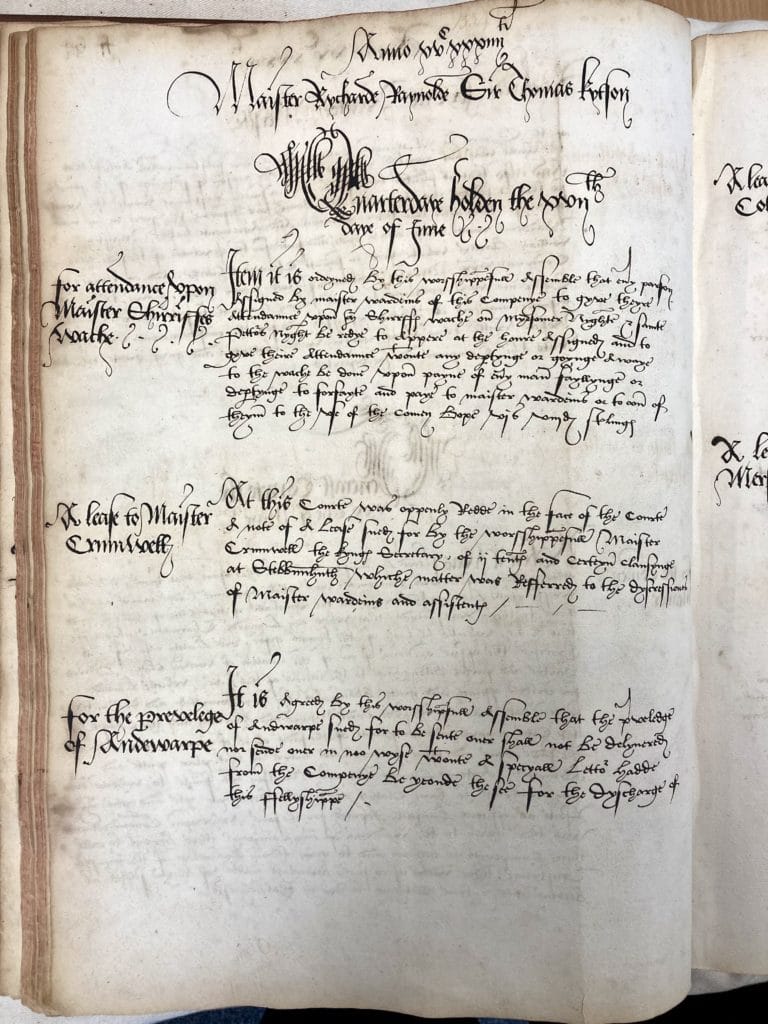 Anno xvc xxxiiiiti
Maister Rycharde Raynolde Sir Thomas kytson
Quarterdaye holden the xviith
daye of June
for attendance vpon
Maister Shirriffes
wache
Item it is ordeyned By this worshippefull Assemble that eny parson
Assigned By maister wardeins of this Compenye to gyve theyre
Attendaunce vpon þe Shirreffs wache on Mydsomer Nyghte & sainte
Petters Nyght Be redye to Appere at the houre Assigned and to
gyve theire Attendannce wtoute any deptynge or goynge Awaye
to the wache be done vpon payne of eny man faylynge or
deptynge to forfayte and paye to maister wardeins or to oon of
theym to the vse of the Comen Boxe vjs viijd sterlings
A lease to Maister
Crumwell
At this Courte was oppenly Redde in the face of the Courte
A note of A Lease sued for By the worshippefull Maister
Crumwell the kyngs Secretary of ij tents and Certeyn Clausynge
at Stebbunhuth whiche matter was Refferred to the dyscressions
of Maister wardeins and assistents
For the prevelege
of Andewarpe
It is Agreed By this worshipfull Assemble that the pveledge
of Andwarpe sued for to be sente over shall not Be delyuered
nor sende over in noo wyse wtoute A specyall Letter hadde
from the Compenye Be yeonde the see for the dyscharge of
this Ffellyshippe
A lea
Col
A le
Mer